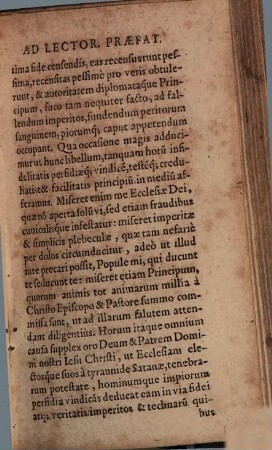 AD LECTOR. PRÆFAT.
tima fide censendis, eas recensuerunt pes-
sima, recensitas pessimè pro veris obtule-
runt, & autoritatem diplomataque Prin-
cipum, fuco tam nequiter facto, ad fal-
lendum imperitos, fundendum peritorum
sanguinem, piorumq; caput appetendum
occupant. Qua occasione magis adduci-
mur ut hunc libellum, tanquam horũ infi-
delitatis perfidiæq; vindicẽ, testẽq; credu-
litatis & facilitatis principiũ in mediũ af-
feramus. Miseret enim me Ecclesiæ Dei,
quæ nõ aperta solũ vi, sed etiam fraudibus
cuniculisque infestatur: miseret imperitæ
& simplicis plebeculæ, quæ tam nefariè
per dolos circunducitur, adeò ut illud
iure precari possit, Popule mi, qui ducunt
te seducunt te: miseret etiam Principum,
quorum animis tot animarum millia à
Christo Episcopo & Pastore summo com-
missa sunt, ut ad illarum salutem atten-
dant diligentius. Horum itaque omnium
causa supplex oro Deum & Patrem Domi-
ni nostri Iesu Christi, ut Ecclesiam ele-
ctosque suos à tyrannide Satanæ, tenebra-
rum potestate, hominumque impiorum
perfidia vindicãs deducat eam in via fidei
atq; veritatis: imperitos & technarũ qui-
bus